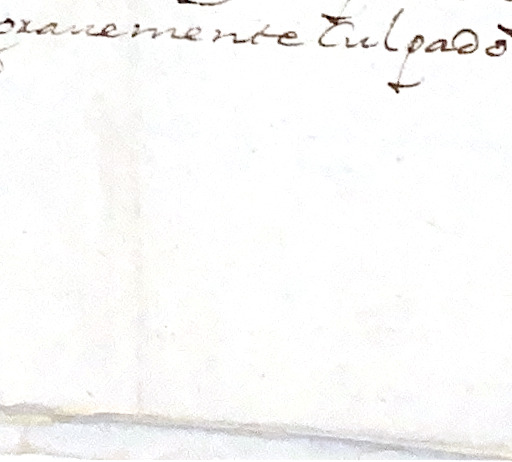 grauemente Culpado